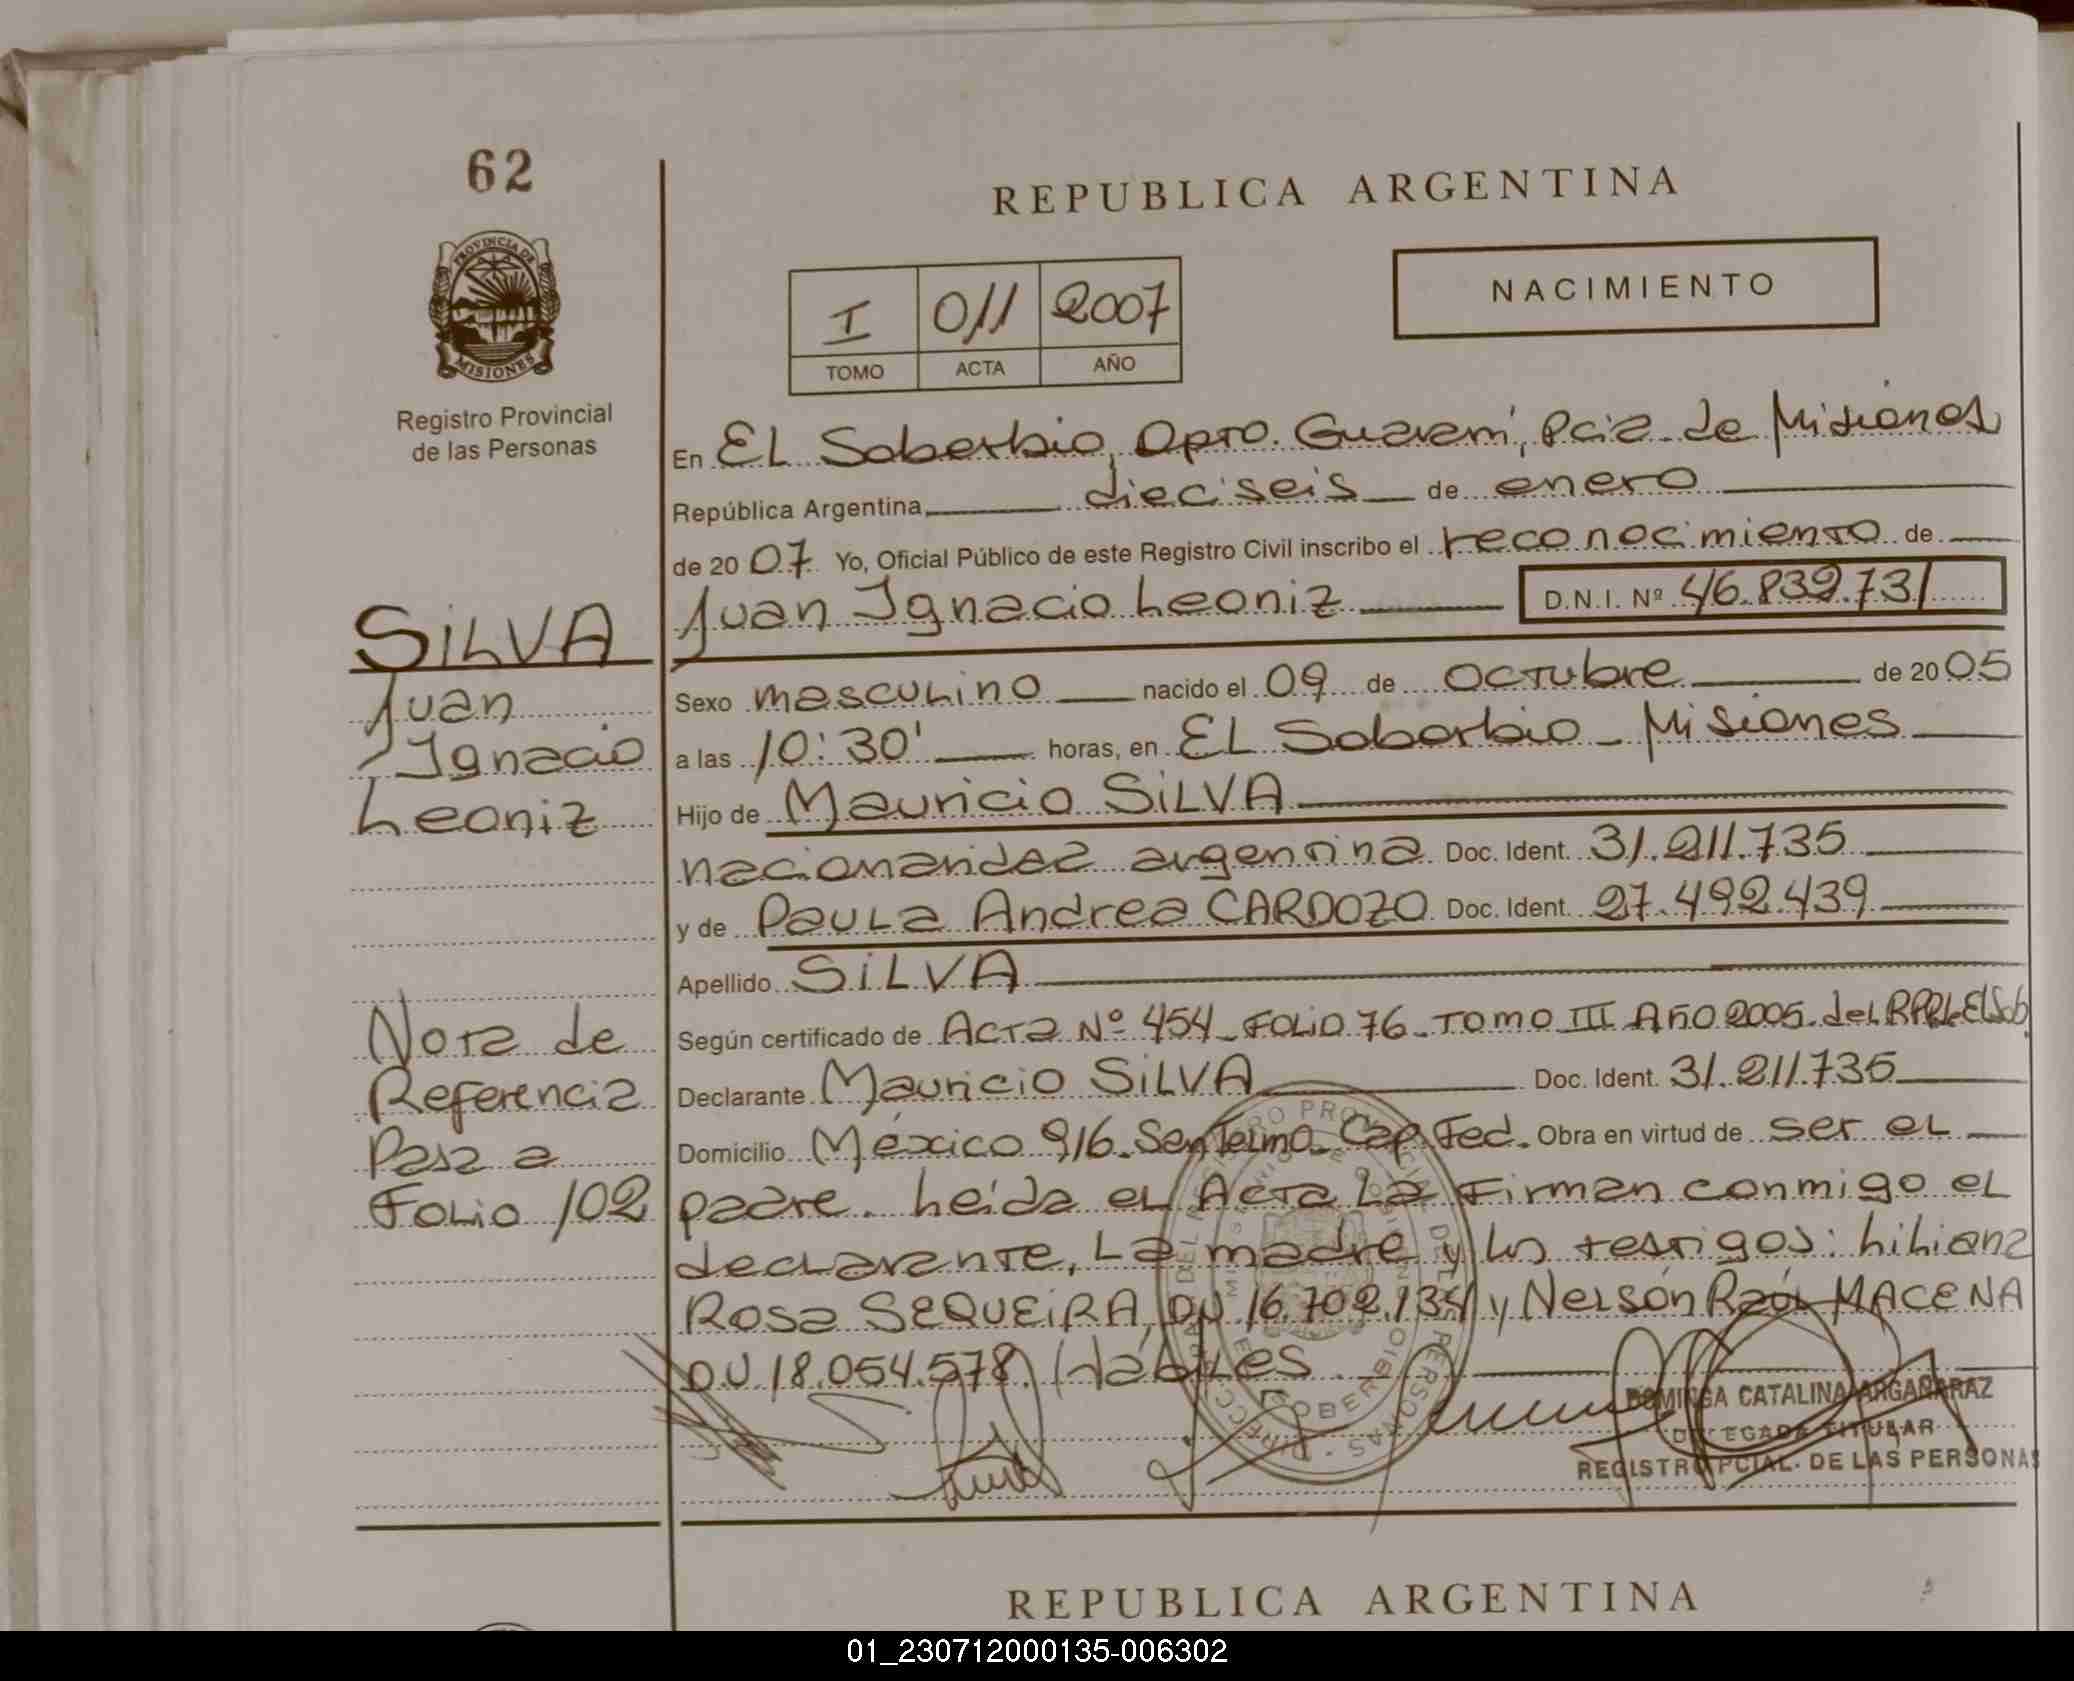 62
REPUBLICA ARGENTINA
PROVINCIA DE
MISIONES
Registro Provincial
de las Personas
NACIMIENTO
I 011 2007
TOMO ACTA AÑO
En EL Soberbio, Dpto. Guaraní, Pcia. de Misiones
República Argentina, dieciseis de enero
de 2007 Yo, Oficial Público de este Registro Civil inscribo el reconocimiento de
Juan Ignacio Leoniz D.N.I. Nº 46.839.731
SILVA
Juan
Ignacio
Leoniz
Sexo masculino nacido el 09 de octubre de 2005
a las 10:30' horas, en EL Soberbio - Misiones
Hijo de Mauricio SILVA
nacionalidad argentina Doc. Ident. 31.211.735
y de Paula Andrea CARDOZO Doc. Ident. 27.492.439
Apellido SILVA
Según certificado de Acta Nº 454 - Folio 76 - Tomo III Año 2005 del R.P.P. EL Sob
Declarante Mauricio SILVA Doc. Ident. 31.211.735
Domicilio México 916 - San Telmo - Cap. Fed. Obra en virtud de ser el
padre. Leída el Acta la Firman conmigo el
declarante, La madre y los testigos: Liliana
Rosa SEQUEIRA, DU 16.702.134 y Nelsón Raúl MACENA
D.U. 18.054.578. Hábiles
Nota de
Referencia
Pasa a
Folio 102
DOMINGA CATALINA ARGAÑARAZ
DELEGADA TITULAR
REGISTRO PCIAL. DE LAS PERSONAS
REPUBLICA ARGENTINA
01_230712000135-006302